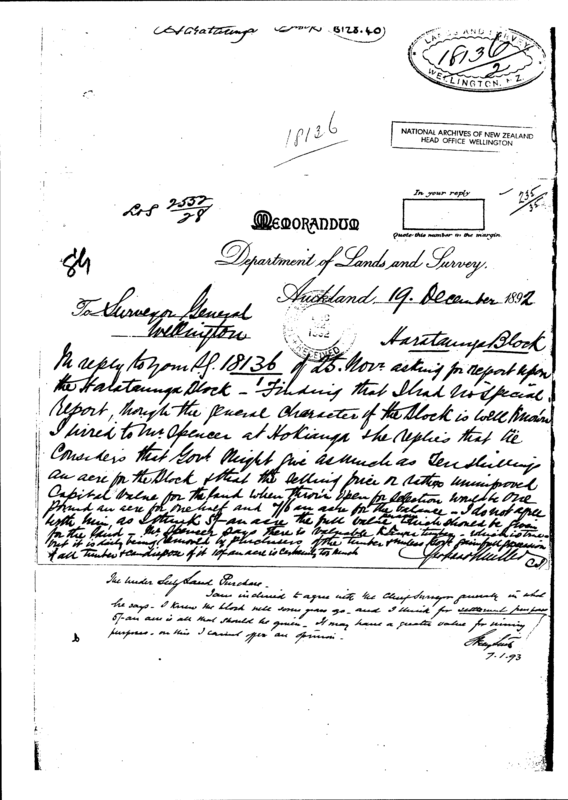 Harataunga Block (B128.40)
LANDS AND SURVEY
18136/2
WELLINGTON, N.Z.
18136
NATIONAL ARCHIVES OF NEW ZEALAND
HEAD OFFICE WELLINGTON
In your reply
Quote this number in the margin.
235/35
L&S 2552/28
MEMORANDUM
Department of Lands and Survey.
Auckland, 19. December 1892
To Surveyor General
Wellington
RECEIVED
Harataunga Block
In reply to your S.G. 18136 of 25. Nov. asking for report upon
the Harataunga Block - Finding that I had no special
report, though the general character of the Block is well known
I wired to Mr Spencer at Hokianga & he replies that he
Considers that Govt might give as much as Ten shillings
an acre for the Block & that the selling price or unimproved
Capital Value for the land when thrown open for selection would be One
Pound an acre for one half and an acre for the balance - I do not agree
with him, as I think 5/- an acre the full value which should be given
for the land - Mr Spencer says there is valuable Kauri timber - which is true
but it is being removed by purchasers of the timber & unless Govt gain full possession
of all timber & can dispose of it 10/- an acre is certainly too much
The Under Secy Land Purchase.
I am inclined to agree with the Chief Surveyor generally in what
he says. I knew the block well some years ago - and I think for settlement purposes
5/- an acre is all that should be given. It may have a greater value for mining
purposes - on this I cannot offer an opinion.
7.1.93